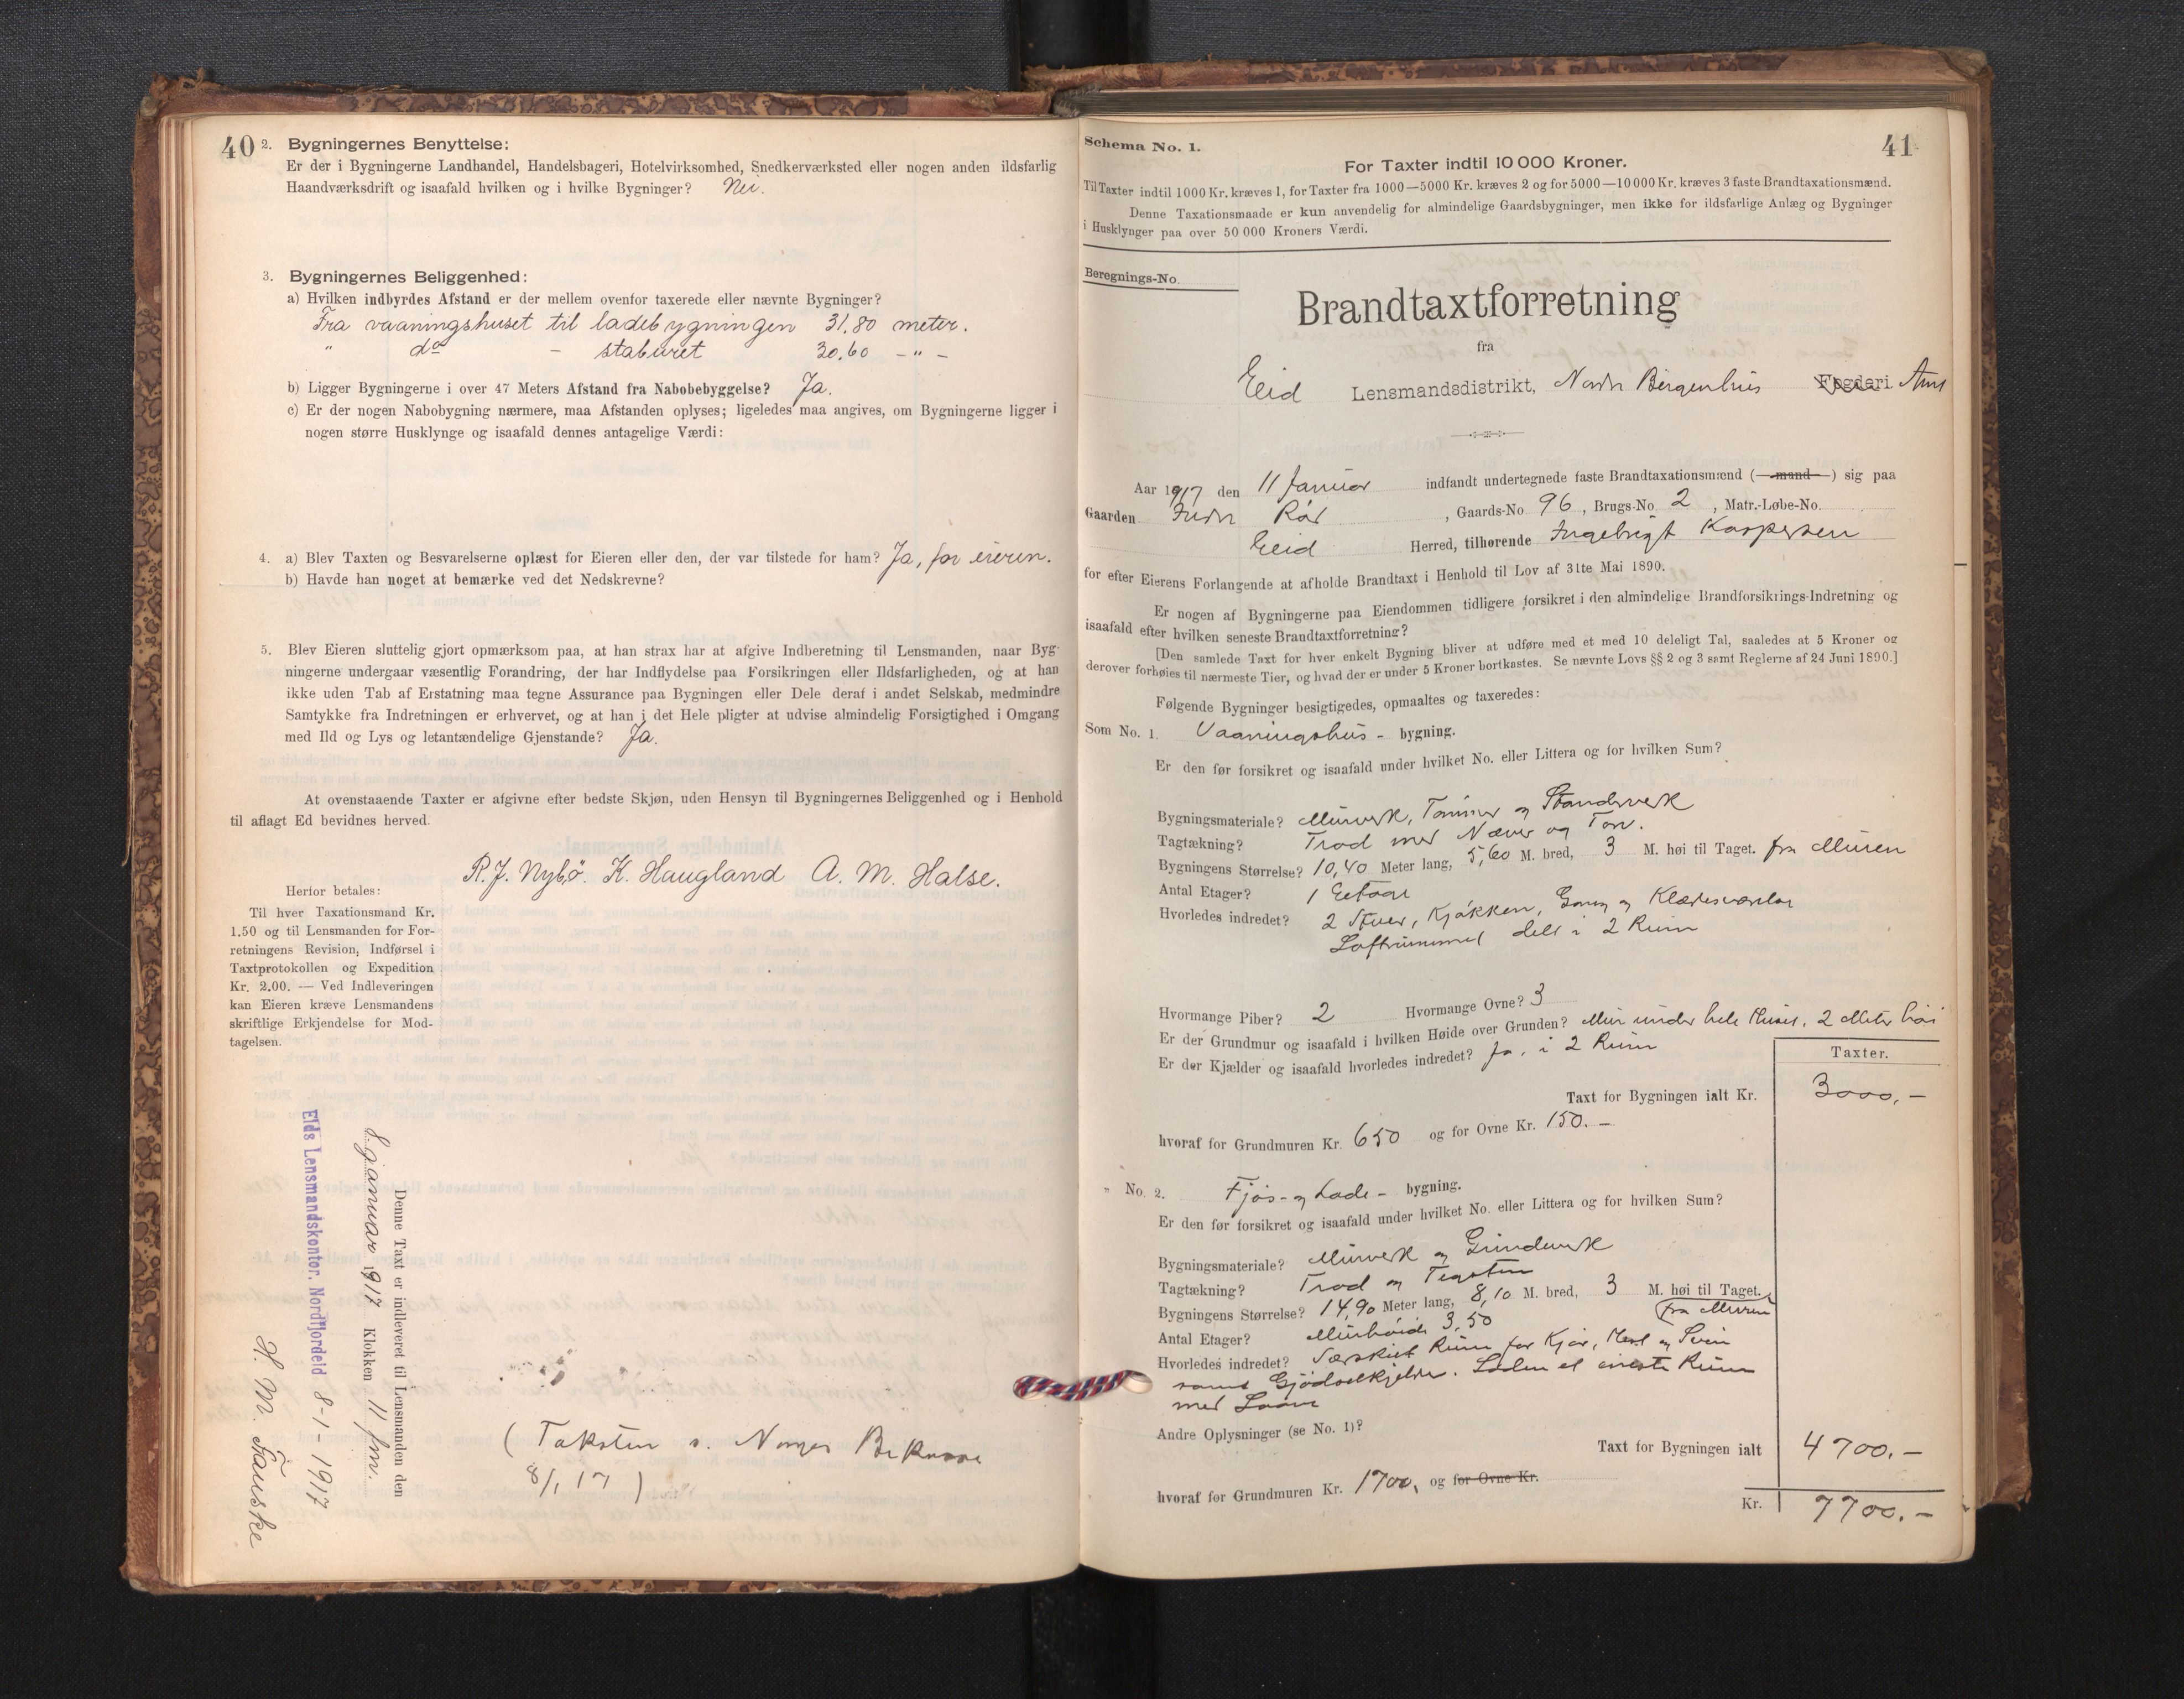 40
2. Bygningernes Benyttelse:
Er der i Bygningerne Landhandel, Handelsbageri, Hotelvirksomhed, Snedkerværksted eller nogen anden ildsfarlig
Haandværksdrift og isaafald hvilken og i hvilke Bygninger? Nei.
3. Bygningernes Beliggenhed:
a) Hvilken indbyrdes Afstand er der mellem ovenfor taxerede eller nævnte Bygninger?
Fra vaaningshuset til ladebygningen 31.80 meter.
" do - staburet 30.60 - " -
b) Ligger Bygningerne i over 47 Meters Afstand fra Nabobebyggelse? Ja.
c) Er der nogen Nabobygning nærmere, maa Afstanden oplyses; ligeledes maa angives, om Bygningerne ligger i
nogen større Husklynge og isaafald dennes antagelige Værdi:
4. a) Blev Taxten og Besvarelserne oplæst for Eieren eller den, der var tilstede for ham? Ja, for eieren.
b) Havde han noget at bemærke ved det Nedskrevne?
5. Blev Eieren sluttelig gjort opmærksom paa, at han strax har at afgive Indberetning til Lensmanden, naar Byg-
ningerne undergaar væsentlig Forandring, der har Indflydelse paa Forsikringen eller Ildsfarligheden, og at han
ikke uden Tab af Erstatning maa tegne Assurance paa Bygningen eller Dele deraf i andet Selskab, medmindre
Samtykke fra Indretningen er erhvervet, og at han i det Hele pligter at udvise almindelig Forsigtighed i Omgang
med Ild og Lys og letantændelige Gjenstande? Ja.
At ovenstaaende Taxter er afgivne efter bedste Skjøn, uden Hensyn til Bygningernes Beliggenhed og i Henhold
til aflagt Ed bevidnes herved.
R. J. Nybö. K. Haugland A. M. Halse.
Herfor betales:
Til hver Taxationsmand Kr.
1.50 og til Lensmanden for For-
retningens Revision, Indførsel i
Taxtprotokollen og Expedition
Kr. 2.00. — Ved Indleveringen
kan Eieren kræve Lensmandens
skriftlige Erkjendelse for Mod-
tagelsen.
Denne Taxt er indleveret til Lensmanden den
8 januar 1917 Klokken 11 fm.
Eids Lensmandskontor, Nordfjordeid 8-1-1917
H. M. Fauske
(Taksten s. Norges
8/1 17)
41
Schema No. 1.
For Taxter indtil 10 000 Kroner.
Til Taxter indtil 1000 Kr. kræves 1, for Taxter fra 1000—5000 Kr. kræves 2 og for 5000—10 000 Kr. kræves 3 faste Brandtaxationsmænd.
Denne Taxationsmaade er kun anvendelig for almindelige Gaardsbygninger, men ikke for ildsfarlige Anlæg og Bygninger
i Husklynger paa over 50 000 Kroners Værdi.
Beregnings-No.
Brandtaxtforretning
fra
Eid Lensmandsdistrikt, Nordre Bergenhus Fogderi Amt
Aar 1917 den 11 Januar indfandt undertegnede faste Brandtaxationsmænd (—mand—) sig paa
Gaarden Indre Röd, Gaards-No 96, Brugs-No. 2, Matr.-Løbe-No.
Eid Herred, tilhørende Ingebrigt Kaspersen
for efter Eierens Forlangende at afholde Brandtaxt i Henhold til Lov af 31te Mai 1890.
Er nogen af Bygningerne paa Eiendommen tidligere forsikret i den almindelige Brandforsikrings-Indretning og
isaafald efter hvilken seneste Brandtaxtforretning?
[Den samlede Taxt for hver enkelt Bygning bliver at udføre med et med 10 deleligt Tal, saaledes at 5 Kroner og
derover forhøies til nærmeste Tier, og hvad der er under 5 Kroner bortkastes. Se nævnte Lovs §§ 2 og 3 samt Reglerne af 24 Juni 1890.]
Følgende Bygninger besigtigedes, opmaaltes og taxeredes:
Som No. 1. Vaaningshus - bygning.
Er den før forsikret og isaafald under hvilket No. eller Littera og for hvilken Sum?
Bygningsmateriale? Murverk, Tömmer og Standverk
Tagtækning? Trod med Næver og Torv.
Bygningens Størrelse? 10,40 Meter lang, 5,60 M. bred, 3 M. høi til Taget. fra Muren
Antal Etager? 1 Eetage
Hvorledes indredet? 2 Stuer, Kjökken, Gang og Klædesværelse
Loftrummet delt i 2 Rum
Hvormange Piber? 2 Hvormange Ovne? 3
Er der Grundmur og isaafald i hvilken Høide over Grunden? Mur under hele Huset, 2 Meter höi
Er der Kjælder og isaafald hvorledes indredet? Ja, i 2 Rum
Taxter.
Taxt for Bygningen ialt Kr. 3000,-
hvoraf for Grundmuren Kr. 650 og for Ovne Kr. 150.-
" No. 2. Fjös- og Lade- bygning.
Er den før forsikret og isaafald under hvilket No. eller Littera og for hvilken Sum?
Bygningsmateriale? Murverk og Grindverk
Tagtækning? Trod og Tegsten
Bygningens Størrelse? 14,90 Meter lang, 8,10 M. bred, 3 M. høi til Taget.
fra Muren
Antal Etager? Murhöide 3,50
Hvorledes indredet? Særskilt Rum for Kjör, Hest og Svin
samt Gjödselkjelder. Laden et eneste Rum
med Laave
Andre Oplysninger (se No. 1)?
Taxt for Bygningen ialt 4700.-
hvoraf for Grundmuren Kr. 1700, og for Ovne Kr.
Kr. 7700.-